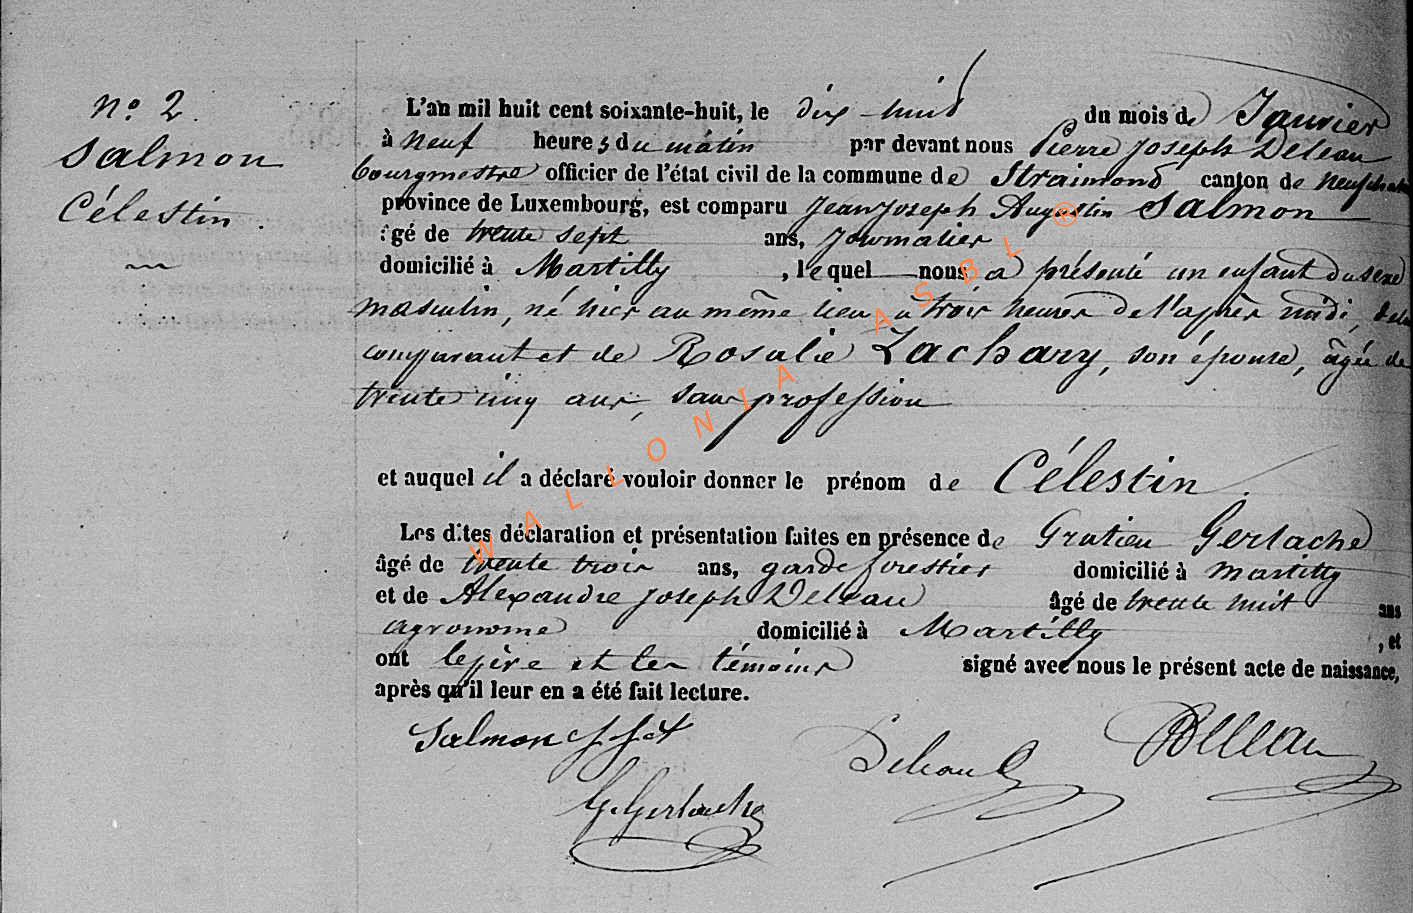 n.o 2.
Salmon
Célestin.
L'an mil huit cent soixante-huit, le dix-huit du mois de Janvier
à neuf heures du matin par devant nous Pierre Joseph Deleau
bourgmestre officier de l'état civil de la commune de Straimond canton de Neufchateau
province de Luxembourg, est comparu Jean Joseph Augustin Salmon
âgé de trente sept ans, journalier
domicilié à Martilly, lequel nous a présenté un enfant du sexe
masculin, né hier au même lieu à trois heures de l'après midi, de lui
comparant et de Rosalie Zachary, son épouse, âgée de
trente cinq ans, sans profession
et auquel il a déclaré vouloir donner le prénom de Célestin.
Les dites déclaration et présentation faites en présence de Gratien Gerlache
âgé de trente trois ans, garde forestier domicilié à Martilly
et de Alexandre Joseph Deleau âgé de trente huit ans
agronome domicilié à Martilly, et
ont le père et les témoins signé avec nous le présent acte de naissance,
après qu'il leur en a été fait lecture.
Salmon
Deleau
Deleau
G. Gerlache
WALLONIA ASBL ®